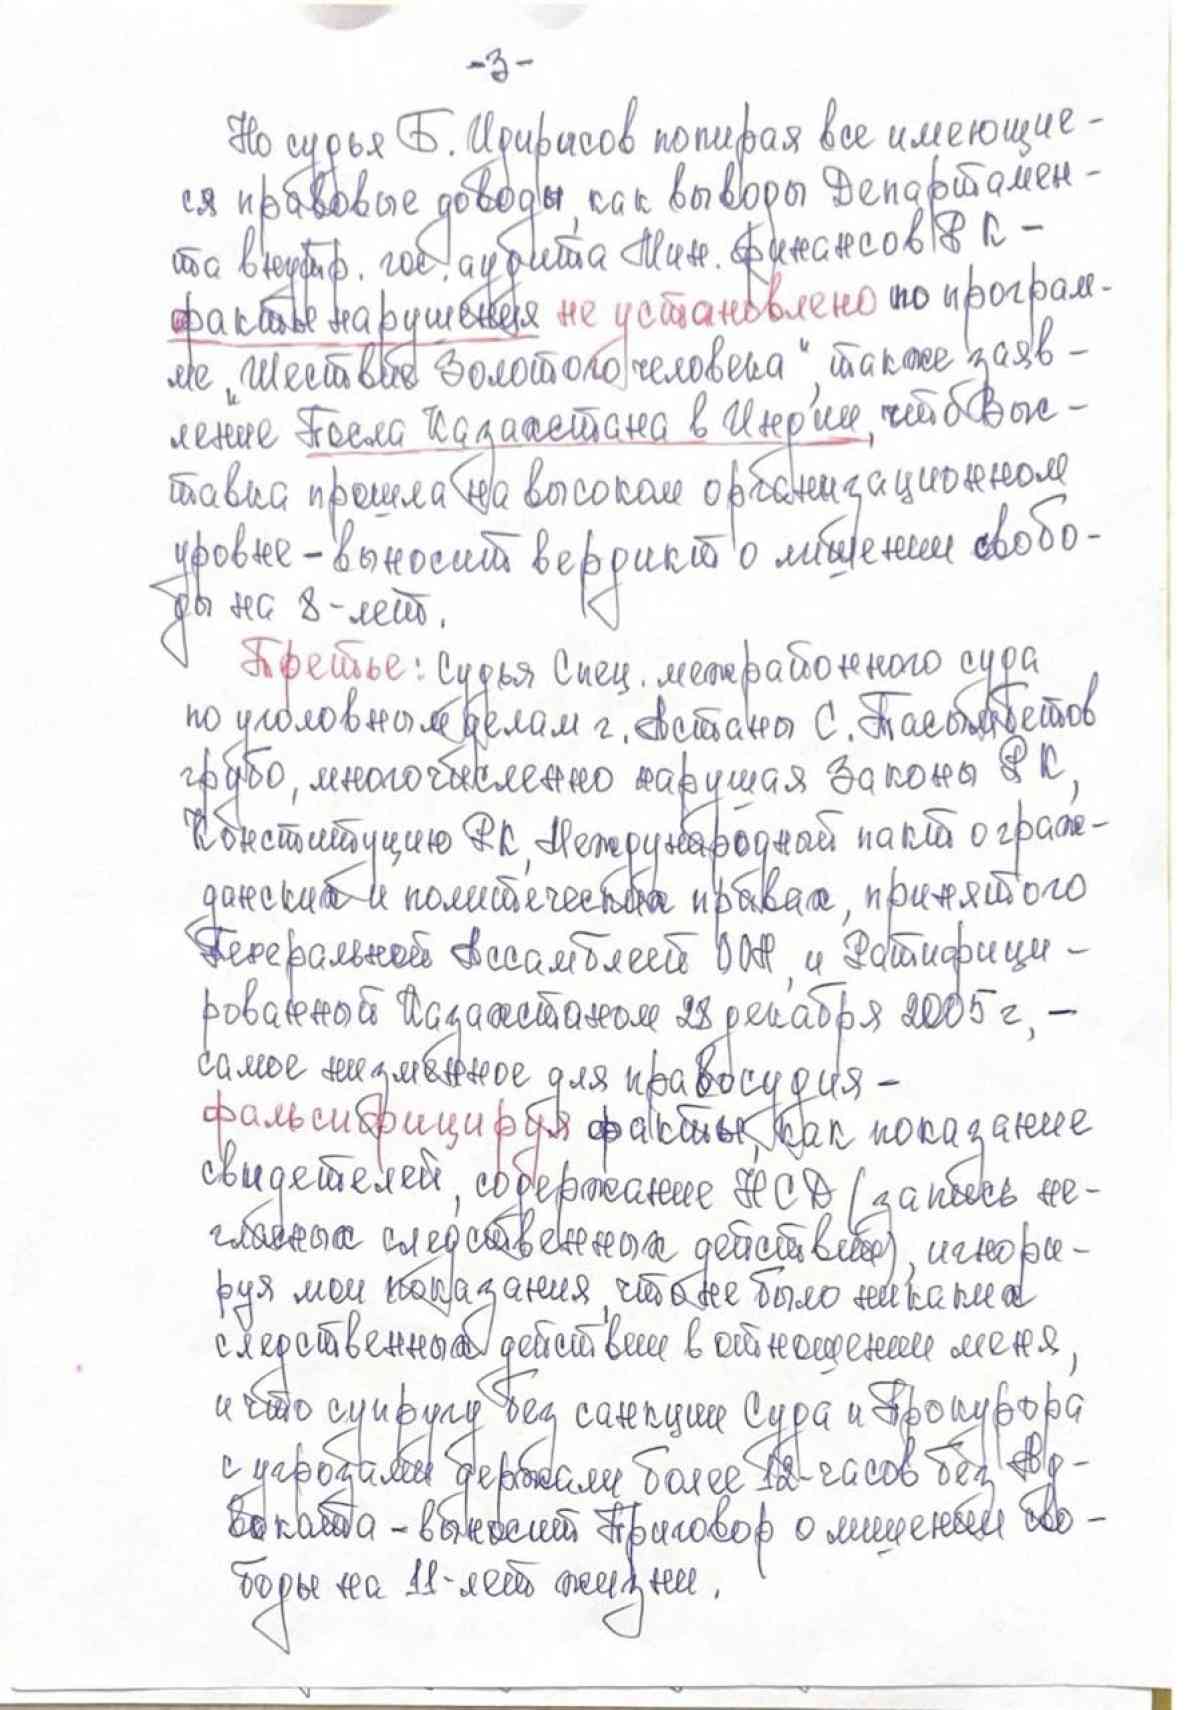 -3-
Но судья Б. Идирисов попирая все имеющие-
ся правовые доводы, как выводы Департамен-
та внутр. гос. аудита Мин. финансов РК -
факты нарушения не установлено по програм-
ме „Шествие Золотого человека“, также заяв-
ление Посла Казахстана в Индии, что Выс-
тавка прошла на высоком организационном
уровне - выносит вердикт о лишении свобо-
ды на 8-лет.
Третье: Судья Спец. межрайонного суда
по уголовным делам г. Астаны С. Касымбетов
грубо, многочисленно нарушая Законы РК,
Конституцию РК, Международный пакт о граж-
данских и политических правах, принятого
Генеральной Ассамблеей ООН, и Ратифици-
рованный Казахстаном 28 декабря 2005 г, -
самое низменное для правосудия -
фальсифицируя факты, как показание
свидетелей, содержание НСД (запись не-
гласных следственных действий), игнори-
руя мои показания, что не было никаких
следственных действии в отношении меня,
и что супругу без санкции Суда и Прокурора
с угрозами держали более 12-часов без Ад-
воката - выносит Приговор о лишении сво-
боды на 11-лет жизни.